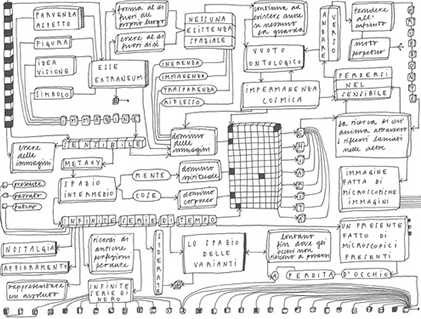 PARVENZA
ASPETTO
FIGURA
IDEA
VISIONE
SIMBOLO
ESSE
EXTRANEUM
forma al di
fuori del
proprio luogo
essere al di
fuori di sé
NESSUNA
ESISTENZA
SPAZIALE
INERENZA
IMMANENZA
TRASPARENZA
RIFLESSO
continua ad
esistere anche
se nessuno
la guarda
VUOTO
ONTOLOGICO
IMPERMANENZA
COSMICA
tendere
all'
moto perpetuo
PERDERSI
NEL
SENSIBILE
la ricerca di un'
anima attraverso
i riflessi lasciati
nelle altre
IMMAGINE
FATTA DI
MICROSCOPICHE
IMMAGINI
IMMAGINE
SENSIBILE
essere
delle
immagini
METAXY
SPAZIO
INTERMEDIO
MENTE
COSE
dominio
delle
immagini
dominio
spirituale
dominio
corporeo
presente
passato
futuro
INFINITE SERIE DI TEMPO
NOSTALGIA
AFFIORAMENTO
rappresentare
un assoluto
ricordi di
antiche
perfezioni
perdute
INFINITE
SERIE DI
NERO
LO SPAZIO
DELLE
VARIANTI
lontano
fin dove gli
occhi non
riescono a posarsi
A PERDITA D'OCCHIO
UN PRESENTE
FATTO DI
MICROSCOPICI
PRESENTI